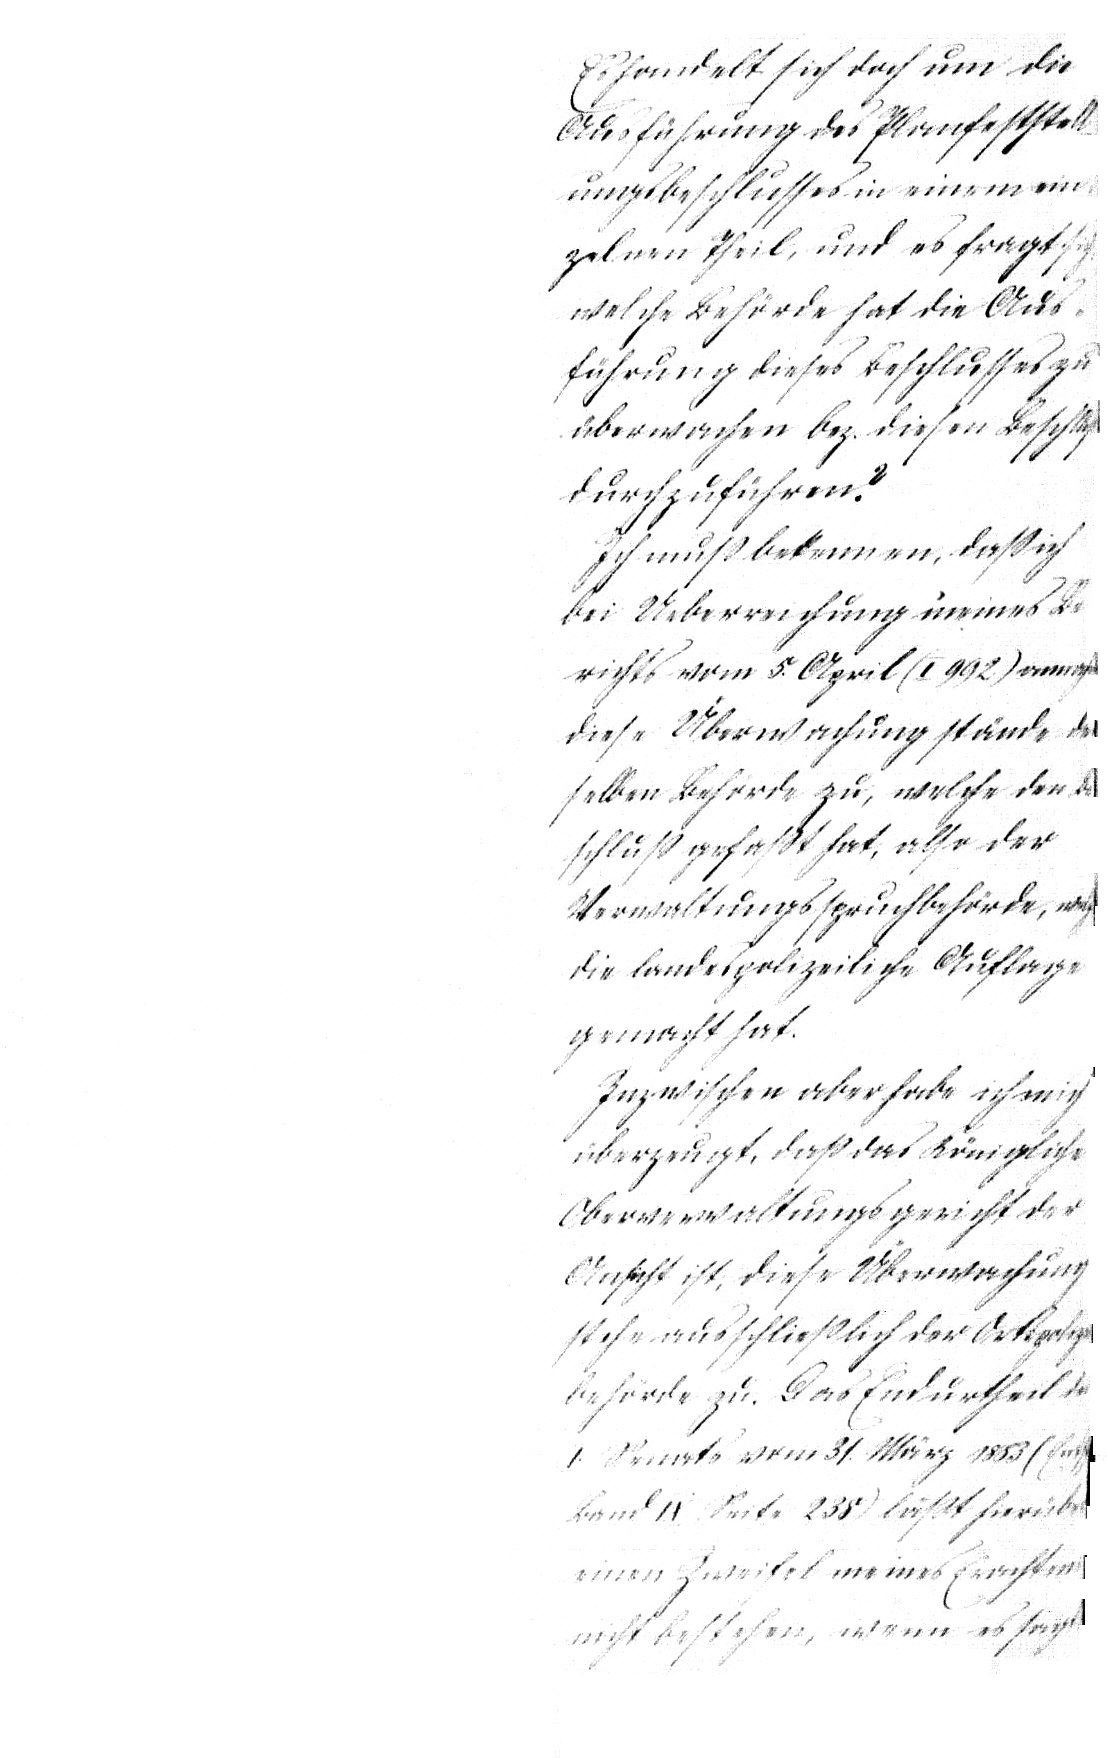 Es handelt sich doch um die
Ausführung des Planfeststell
ungsbeschlusses in einem ein
zelnen Theil, und es fragt sich
welche Behörde hat die Aus-
führung dieses Beschlusses zu
überwachen bez. diesen Beschluß
durchzuführen?
Ich muß bekennen, daß ich
bei Ueberreichung meines Be
richts vom 5. April (I 992) annahm
diese Überwachung stände der
selben Behörde zu, welche den Be
schluß gefaßt hat, also der
Verwaltungsspruchbehörde, welche
die landespolizeiliche Auflage
gemacht hat.
Inzwischen aber habe ich mich
überzeugt, daß das Königliche
Oberverwaltungsgericht der
Ansicht ist, diese Überwachung
stehe ausschließlich der Ortspolizei
behörde zu. Das Endurtheil des
I. Senats vom 31. März 1883 (Entsch
Band IX Seite 238) läßt hierüber
einen Zweifel meines Erachtens
nicht bestehen, wenn es sagt